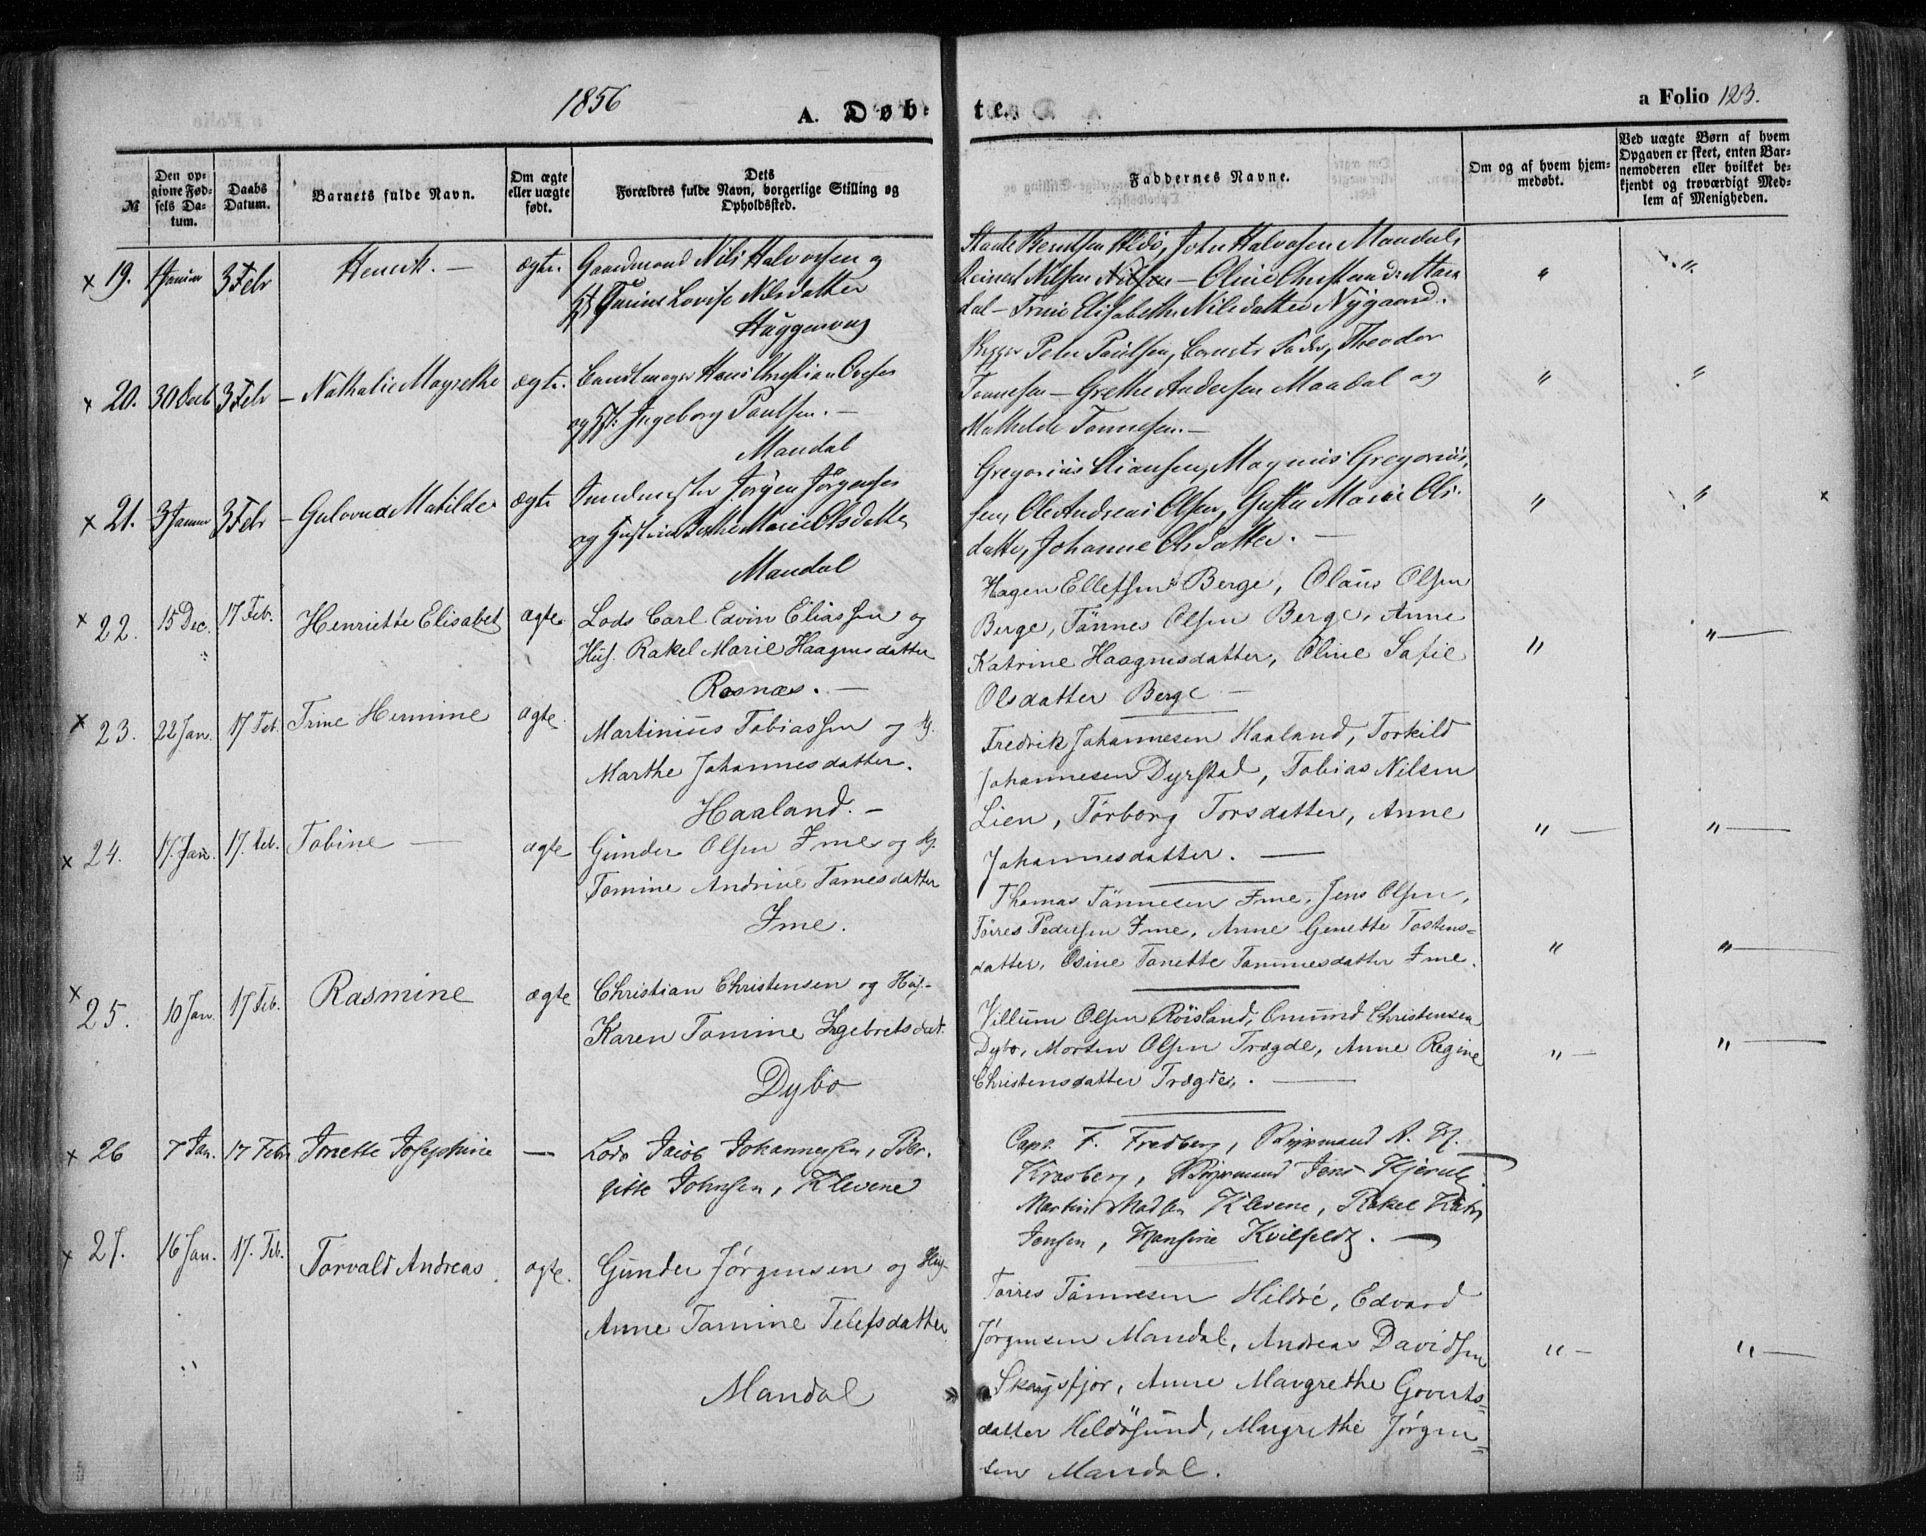 1856
A. Døbte.
a Folio 123.
№
Den opgivne Fødsels Datum.
Daabs Datum.
Barnets fulde Navn.
Om ægte eller uægte født.
Dets Forældres fulde Navn, borgerlige Stilling og Opholdssted.
Faddernes Navne.
Om og af hvem hjemmedøbt.
Ved uægte Børn af hvem Opgaven er skeet, enten Barnemoderen eller hvilket bekjendt og troværdigt Medlem af Menigheden.
x 19. 1 Januar 3 Febr Henrik. — ægte. Gaardmand Nils Halvorsen og
Lovise Nilsdatter
John Halvorsen Mandal,
Reinert Nilsen — Oline
dal — Trine Elisabeth Nilsdatter Nygaard.
x 20. 30 Decb 3 Febr — Nathalie Magrethe ægte. Hans Christian
og Ingeborg Paulsen. —
Mandal
Peder Paulsen, Theodor
Tønnesen — Grethe Andersen Mandal og
Mathilde Tønnesen. —
x 21. 3 Januar 3 Febr — Matilde ægte Smedmester Jørgen Jørgensen
og Marie Olsdatter
Mandal
Gregorius Magnus Gregorius-
sen, Ole Andreas Olsen, Marie Ols-
datter, Johanne Olsdatter. —
x 22. 15 Dec. 17 Feb. Henriette Elisabet ægte Lods Carl Edvin Eliassen og
Hus. Rakel Marie Haagensdatter
Rosnæs. —
Hagen Ellefsen Berge, Olaus Olsen
Berge, Tönnes Olsen Berge, Anne
Katrine Haagensdatter, Oline Safie
Olsdatter Berge —
x 23. 22 Jan. 17 Feb. Trine Hermine ægte. Martinius Tobiassen og H.
Marthe Johannesdatter.
Haaland. —
Fredrik Johannesen Haaland, Torkild
Johannesen Dyrstad, Tobias Nilsen
Lien, Törborg Torsdatter, Anne
Johannesdatter. —
x 24. 17. Jan. 17. Feb. Tobine — ægte Gunder Olsen Ime og H.
Tomine Andrine Tarnesdatter
Ime.
Thomas Tönnesen Ime, Jens Olsen,
Törres Pedersen Ime, Anne Genette Tostens-
datter, Osine Tonette Tommesdatter Ime.
x 25. 10 Jan. 17 Feb. Rasmine ægte Christian Christensen og Hus-
Karen Tomine Ingebretsdat.
Dybo
Villum Olsen Röisland, Omund Christensen
Dybo, Morten Olsen Trægde, Anne Regine
Christensdatter Trægde. —
x 26 7 Jan. 17 Febr Jonette Josephine — Lods Jacob Johannessen, Ber-
gitte Johnsen, Klevene
Capt. F. Fredberg, N. M.
Krosberg, Jens
Martin Madsen Klevene, Rakel
Jensen, Hansine Kvilfeldt. —
x 27. 16 Jan. 17. Feb. Torvald Andreas. ægte. Gunder Jørgensen og Hus-
Anne Tomine Telefsdatter
Mandal
Törres Tönnesen Hildö, Edvard
Jørgensen Mandal, Andreas Davidsen
Skogsfjor, Anne Mavgrethe Goverts-
datter Heldösund, Margrethe Jörgen-
sen Mandal.